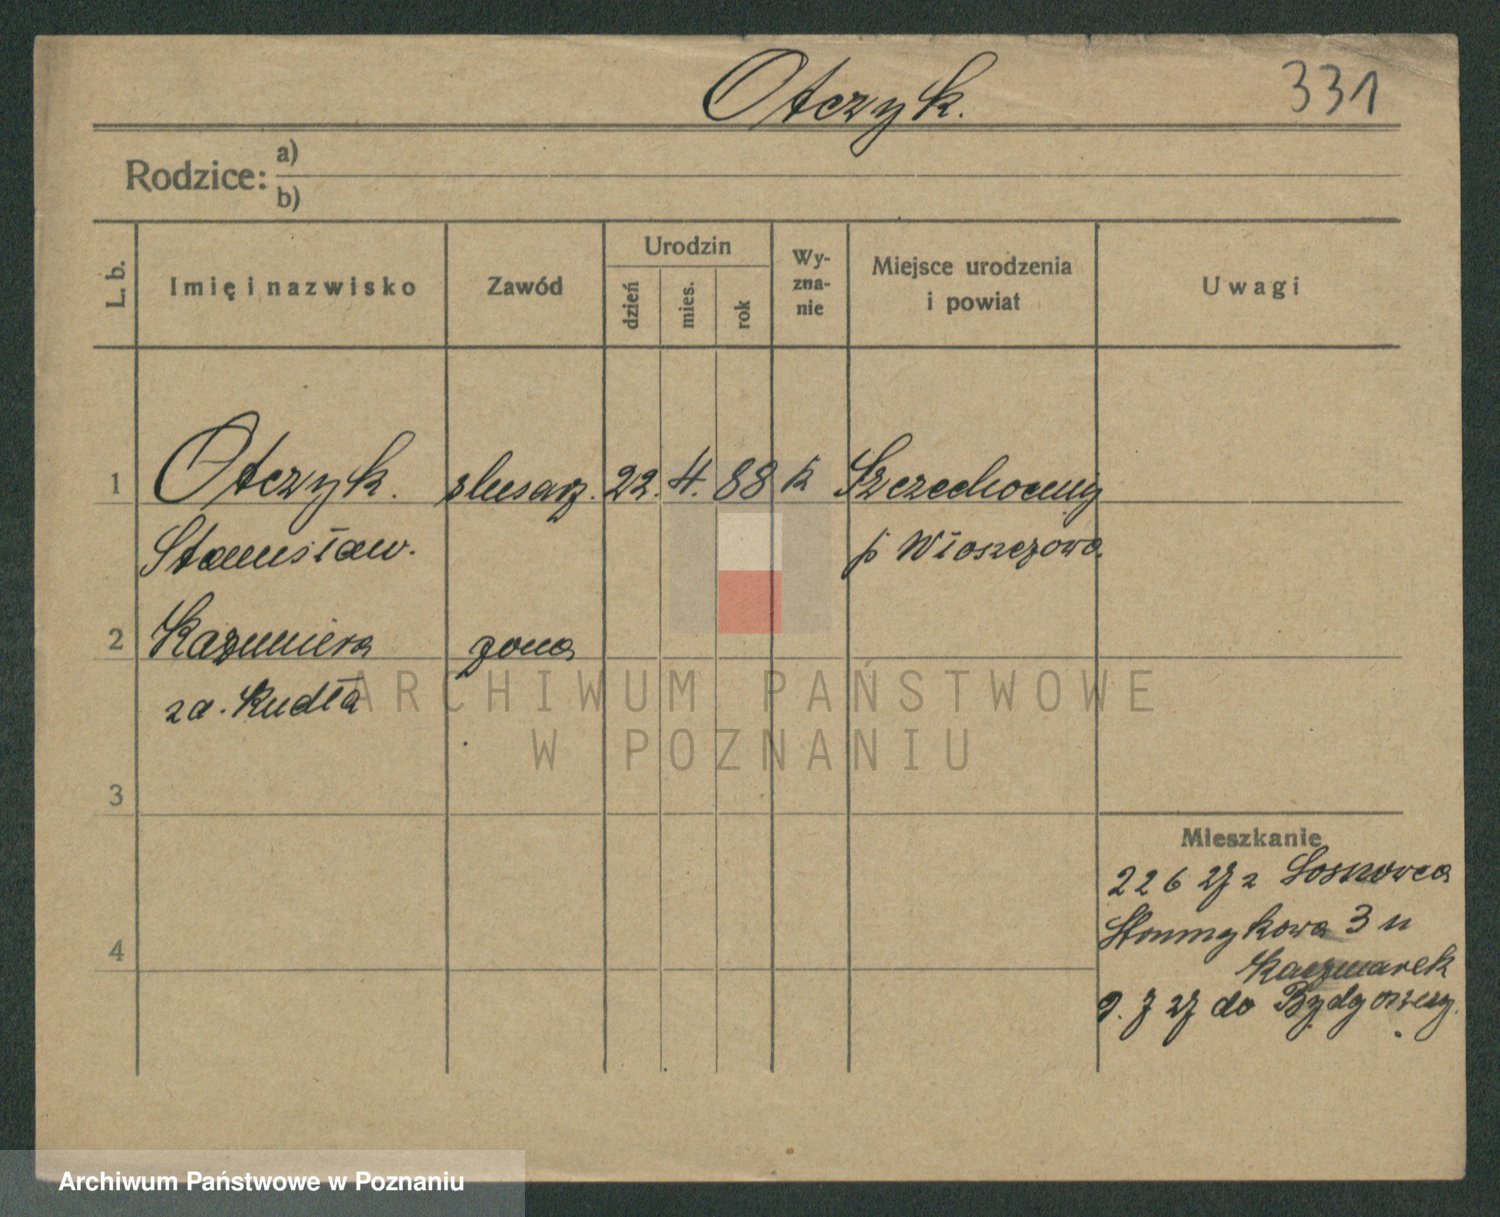 Otczyk.
331
Rodzice: a)
b)
L. b.
Imię i nazwisko
Zawód
Urodzin
dzień
mies.
rok
Wy-
zna-
nie
Miejsce urodzenia
i powiat
Uwagi
1 Otczyk. slusarz. 22. 4. 88 k Szczechociny
Stanisław. p Włoszczowa
2 Kazimiera zona
za. Kudła
3
Mieszkanie
226 27 z Sosnowca
3 u
4
Kaczmarek
27 do Bydgoszczy.
ARCHIWUM PAŃSTWOWE
W POZNANIU
Archiwum Państwowe w Poznaniu